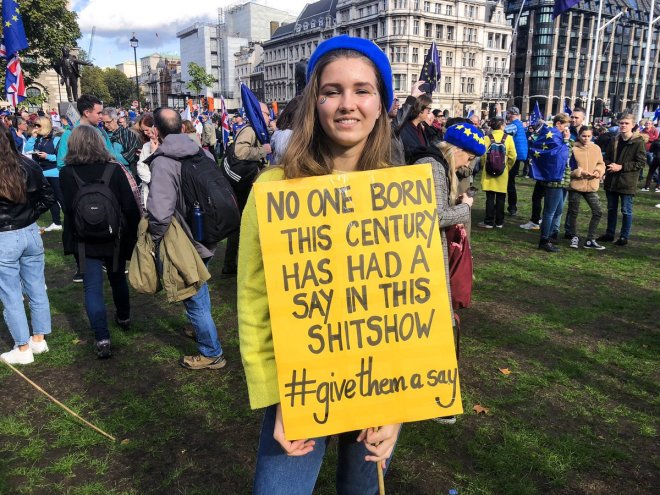 NO ONE BORN
THIS CENTURY
HAS HAD A
SAY IN THIS
SHITSHOW
#givethem a say